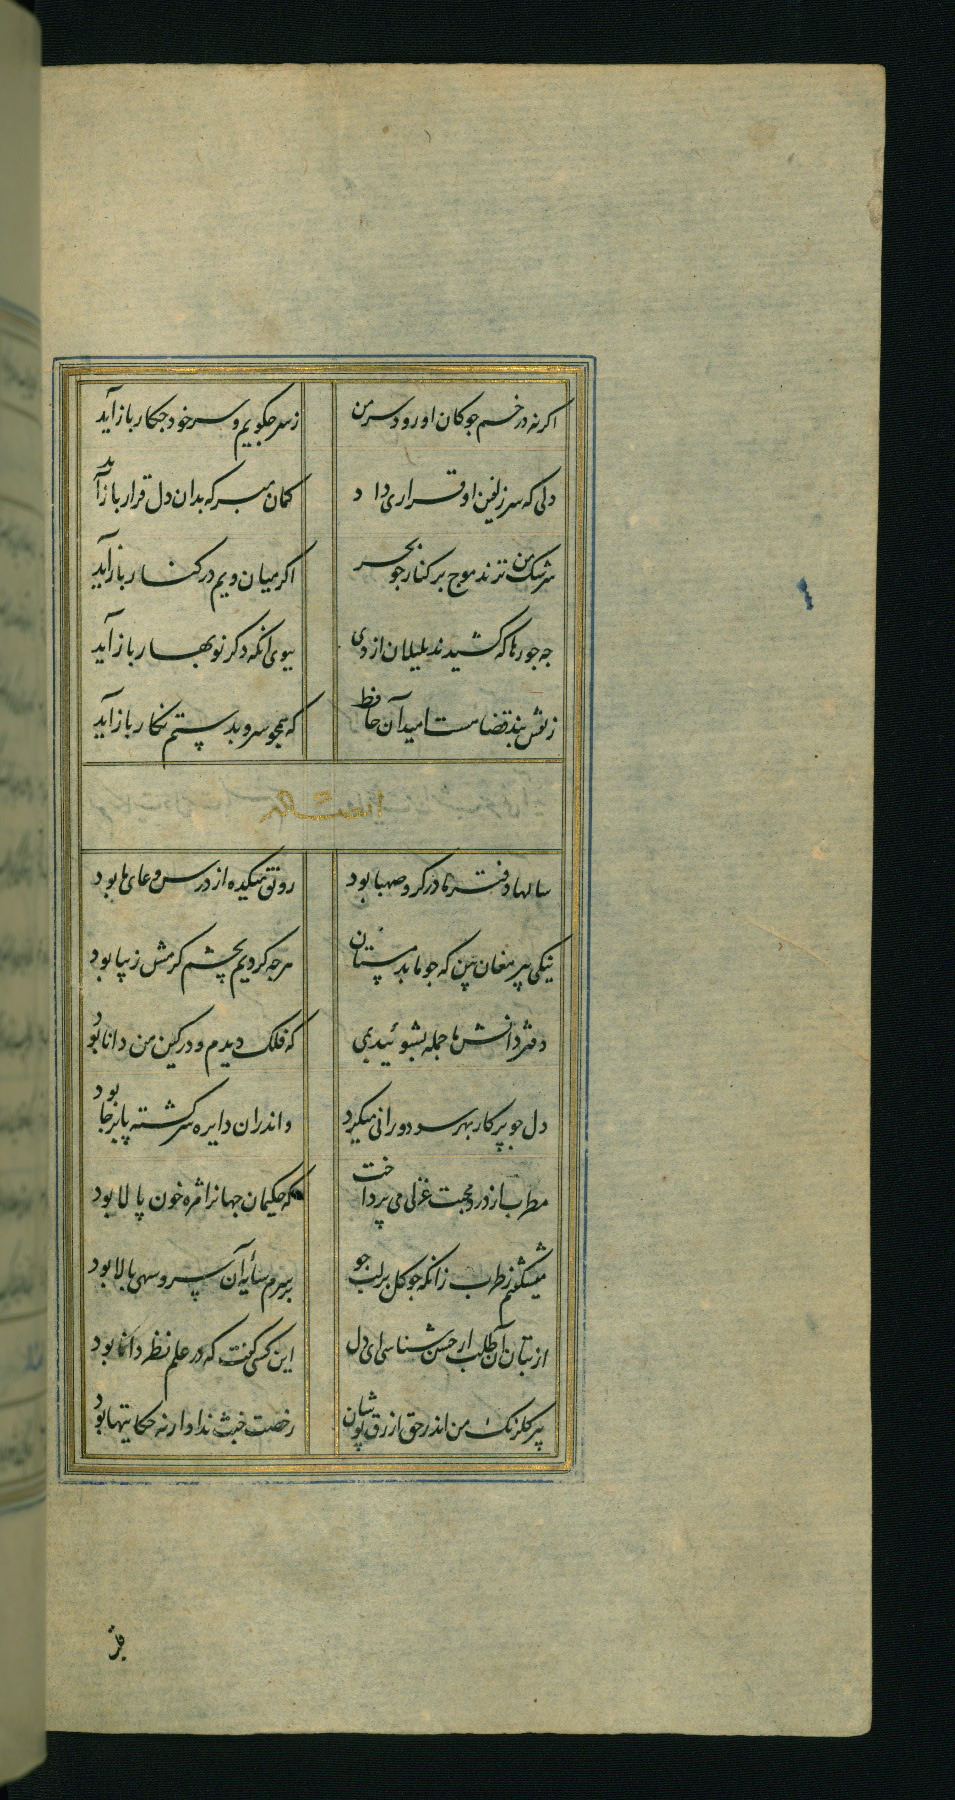 اکر نه در خم جوکان او رود سر من زسر جکویم و سر خود جکار باز آید
دلی که سر زلفین او قراری داد کمان مبر که بدان دل قرار باز آید
سرشک من نزند موج بر کنار جو بحر اکر میان ویم در کنار باز آید
جه جورها که کشیدند بلبلان از دی ببوی انکه دکر نوبهار باز آید
ز نقش بند قضا هست امید آن حافظ که همجو سرو بدستم نکار باز آید
سالها دفتر ما در کرو صهبا بود رونق میکده از درس و دعای ما بود
نیکی پیر مغان بین که جو ما بدمستان هرجه کردیم بچشم کرمش زیبا بود
دفتر دانش ما جمله بشوئید بمی که فلک دیدم و در کین من دانا بود
دل جو پرکار بهر سو دورانی میکرد واندران دایره سرکشته پابرجا بود
مطرب از درد محبت غزلی می پرداخت که حکیمان جهانرا مژه خون پالا بود
میشکفتم ز طرب زانکه جو کل بر لب جو بر سرم سایه آن سرو سهی بالا بود
از بتان آن طلب ار حسن شناسی ای دل این کسی کفت که در علم نظر دانا بود
پیر کلرنک من اندر حق ازرق پوشان رخصت خبث نداد ار نه حکایتها بود
قلب